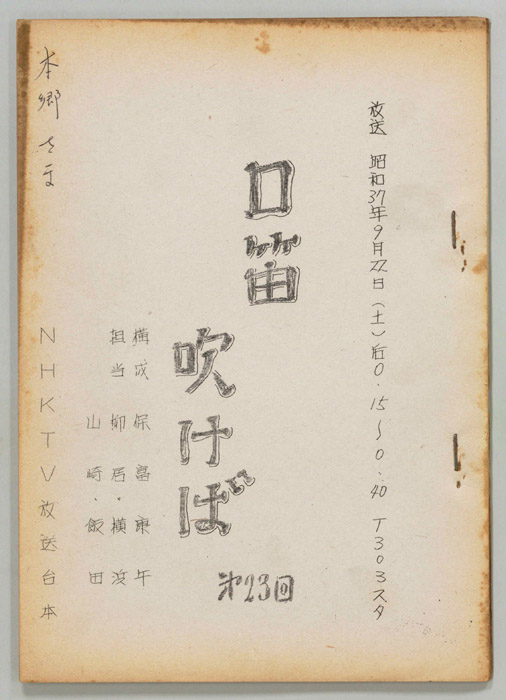 放送 昭和37年9月22日(土)后0.15~0.40 T303スタ
口笛
吹けば
第23回
構成 保富康午
担当 柳居・横浜
山崎・飯田
本郷さま
NHKTV放送台本